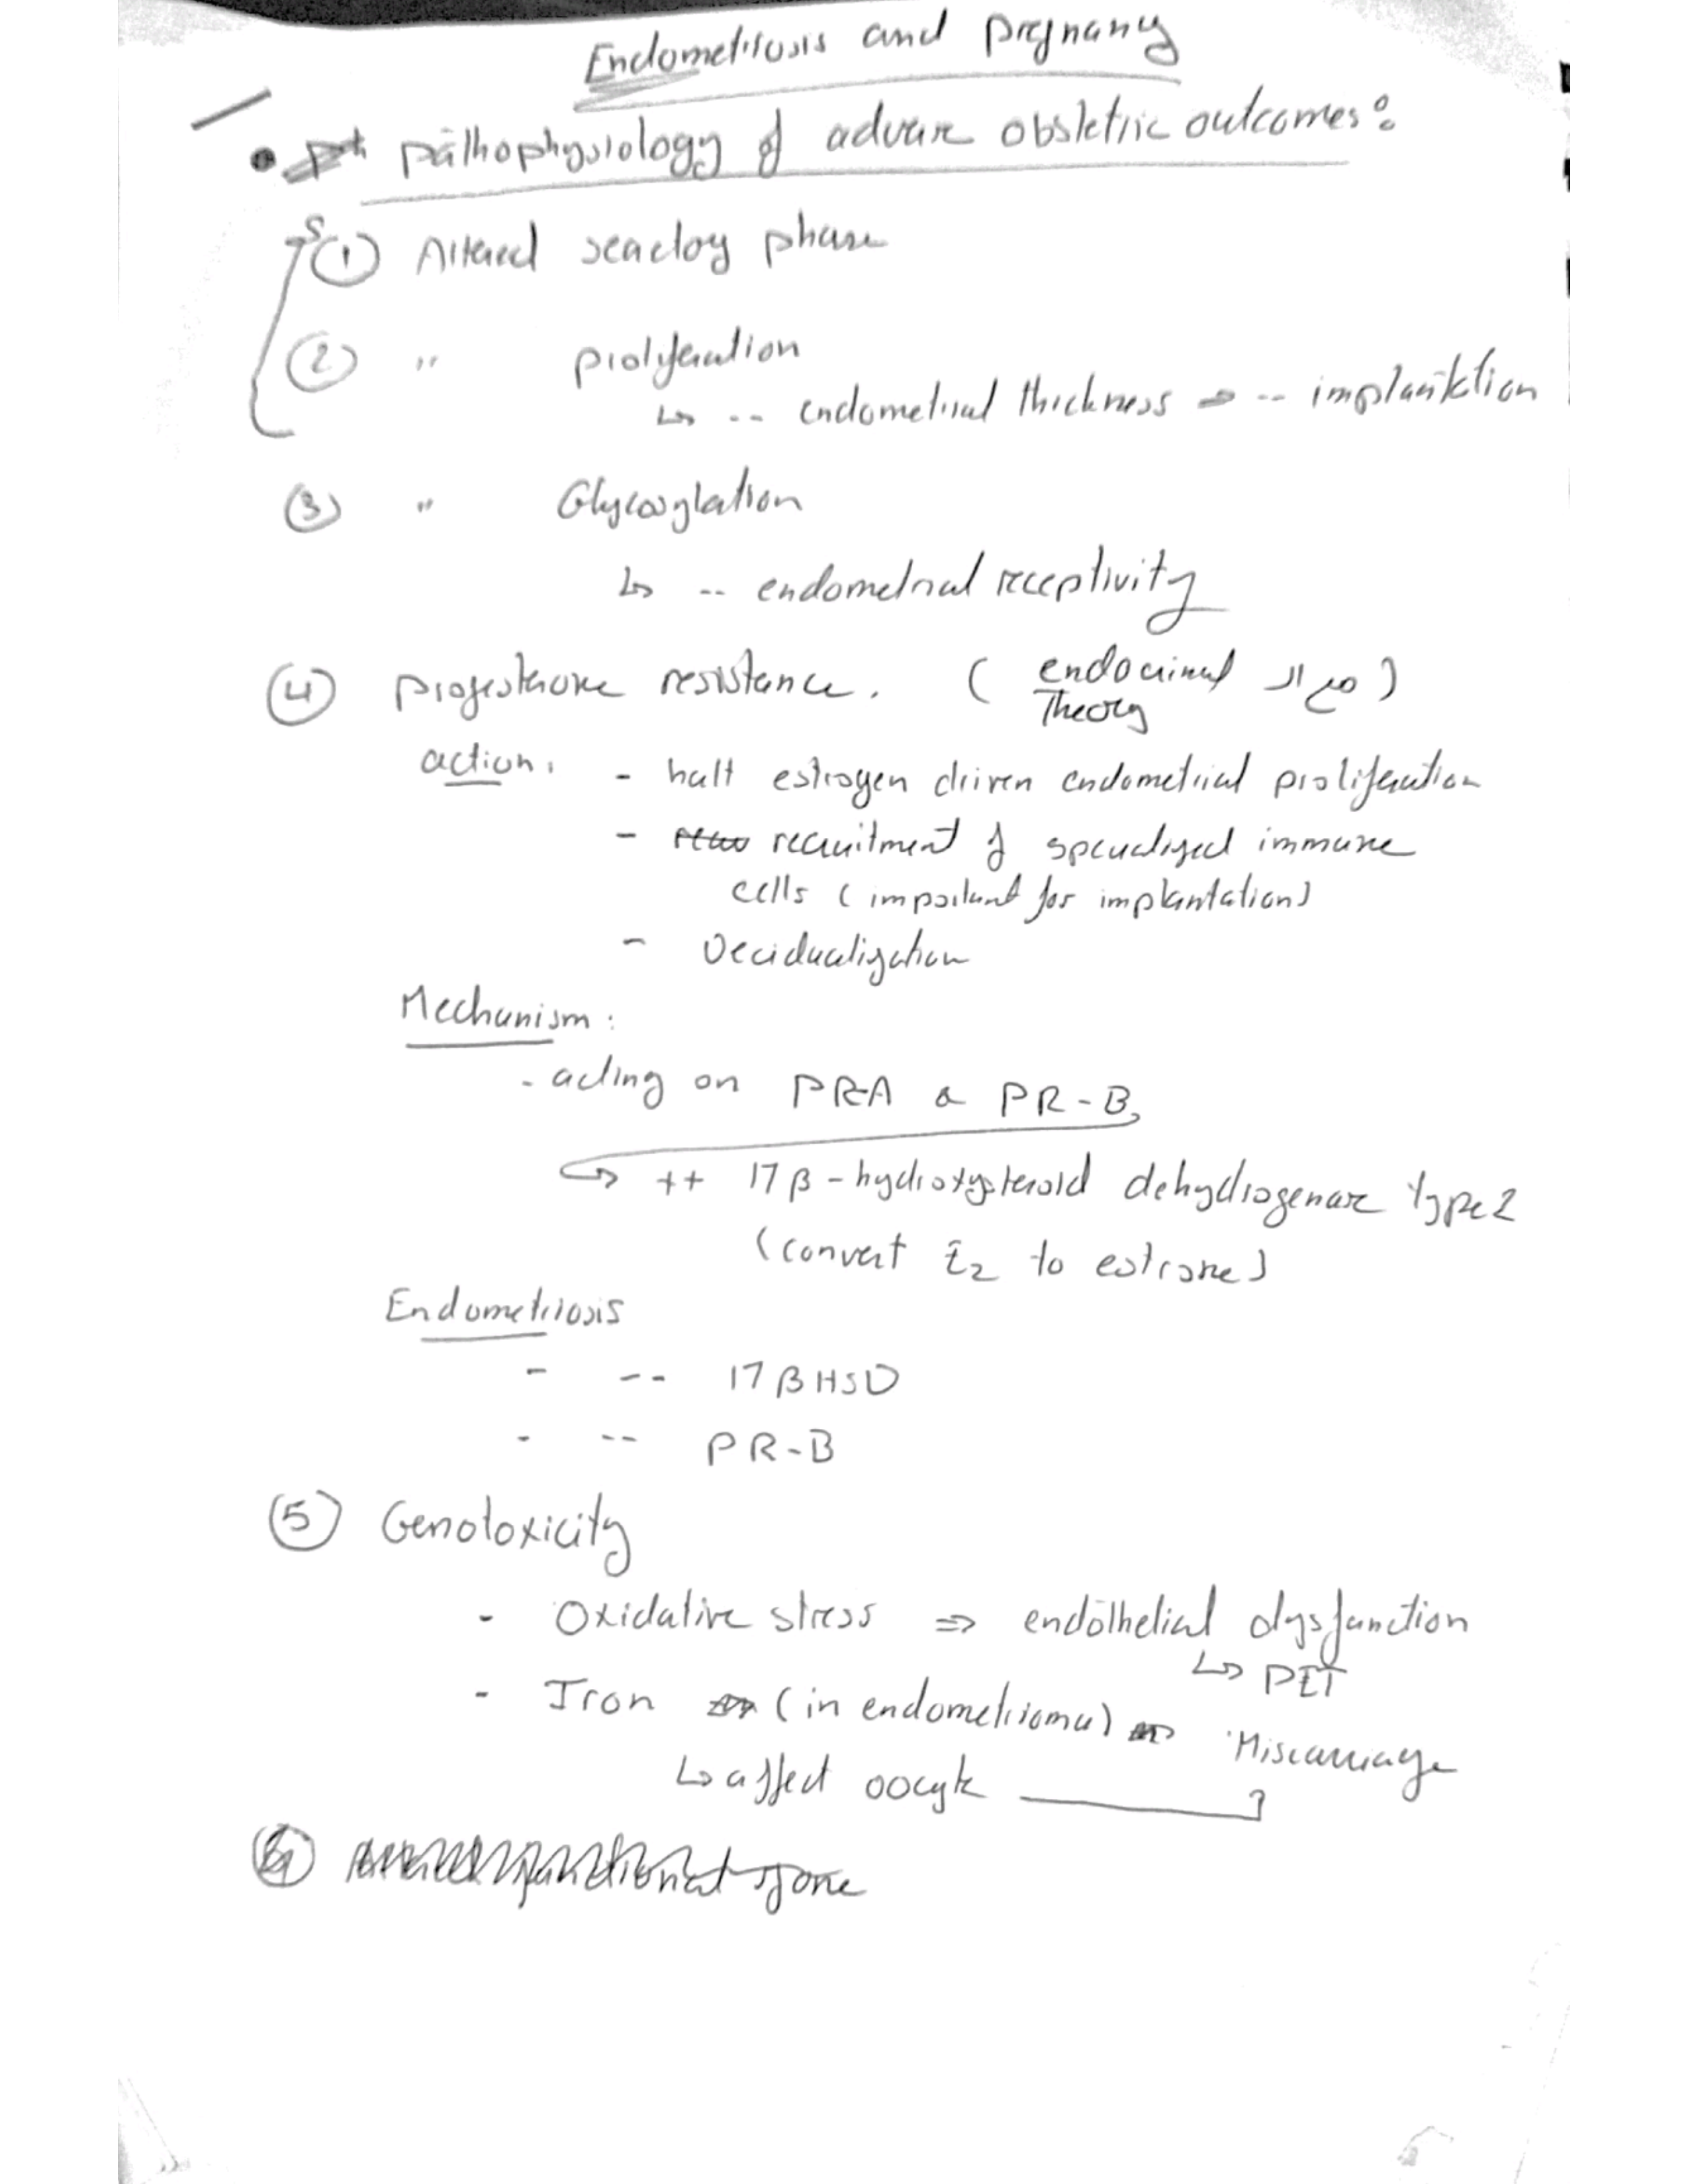 Endometriosis and pregnancy
• pathophysiology of adverse obstetric outcomes:
① Altered secretory phase
② " proliferation
↳ -- endometrial thickness ⇒ -- implantation
③ " Glycosylation
↳ -- endometrial receptivity
④ progesterone resistance. (endocrinal مع ال)
Theory
action: - halt estrogen driven endometrial proliferation
- recruitment of specialized immune
cells (important for implantation)
- Decidualization
Mechanism:
- acting on PR-A & PR-B,
↳ ++ 17β-hydroxysteroid dehydrogenase type 2
(convert E2 to estrone)
Endometriosis
- -- 17βHSD
- -- PR-B
⑤ Genotoxicity
- Oxidative stress ⇒ endothelial dysfunction
↳ PET
- Iron (in endometrioma)
Miscarriage
↳ affect oocyte